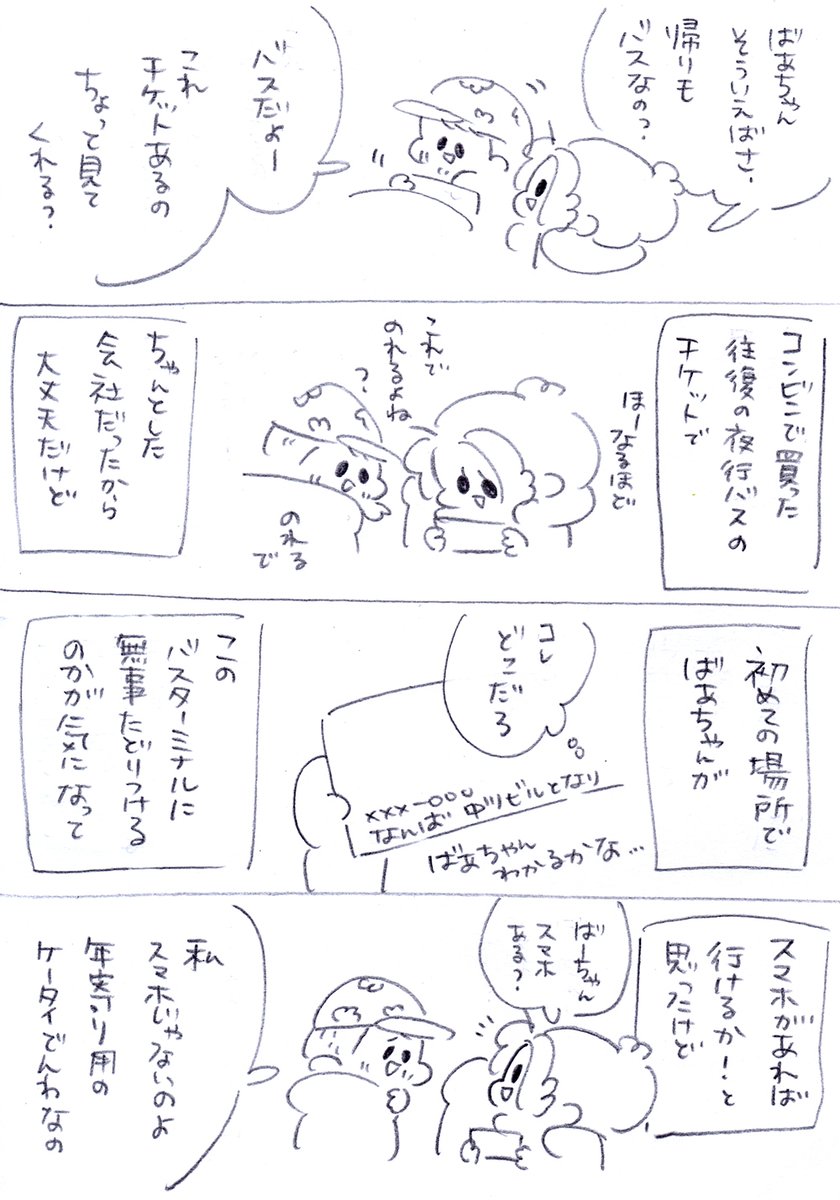 ばあちゃん
そういえばさ、
帰りも
バスなの？
バスだよー
これ
チケットあるの
ちょっと見て
くれる？
コンビニで買った
往復の夜行バスの
チケットで
ほーなるほど
これで
のれるよね
？
のれる
で
ちゃんとした
会社だったから
大丈夫だけど
初めての場所で
ばあちゃんが
コレ
どこだろ
xxx-000
なんば 中ツビルとなり
ばあちゃん
わかるかな…
この
バスターミナルに
無事たどりつける
のかが気になって
スマホがあれば
行けるか！と
思ったけど
ばーちゃん
スマホ
ある？
私
スマホじゃないのよ
年寄り用の
ケータイでんわなの